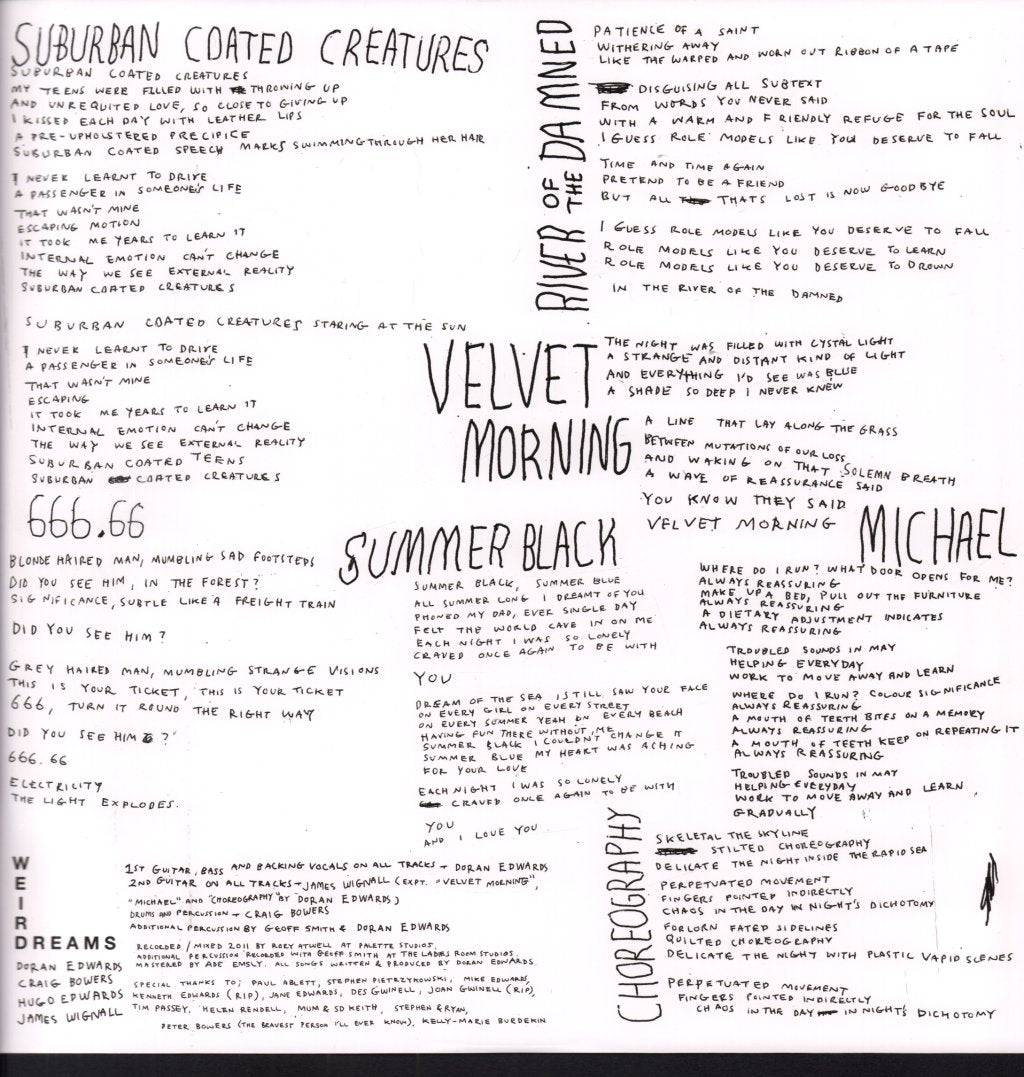 SUBURBAN COATED CREATURES
SUBURBAN COATED CREATURES
MY TEENS WERE FILLED WITH THROWING UP
AND UNREQUITED LOVE, SO CLOSE TO GIVING UP
I KISSED EACH DAY WITH LEATHER LIPS
A PRE-UPHOLSTERED PRECIPICE
SUBURBAN COATED SPEECH MARKS SWIMMING THROUGH HER HAIR
I NEVER LEARNT TO DRIVE
A PASSENGER IN SOMEONE'S LIFE
THAT WASN'T MINE
ESCAPING MOTION
IT TOOK ME YEARS TO LEARN IT
INTERNAL EMOTION CAN'T CHANGE
THE WAY WE SEE EXTERNAL REALITY
SUBURBAN COATED CREATURES
SUBURBAN COATED CREATURES STARING AT THE SUN
I NEVER LEARNT TO DRIVE
A PASSENGER IN SOMEONE'S LIFE
THAT WASN'T MINE
ESCAPING
IT TOOK ME YEARS TO LEARN IT
INTERNAL EMOTION CAN'T CHANGE
THE WAY WE SEE EXTERNAL REALITY
SUBURBAN COATED TEENS
SUBURBAN COATED CREATURES
RIVER OF THE DAMNED
PATIENCE OF A SAINT
WITHERING AWAY
LIKE THE WARPED AND WORN OUT RIBBON OF A TAPE
DISGUISING ALL SUBTEXT
FROM WORDS YOU NEVER SAID
WITH A WARM AND FRIENDLY REFUGE FOR THE SOUL
I GUESS ROLE MODELS LIKE YOU DESERVE TO FALL
TIME AND TIME AGAIN
PRETEND TO BE A FRIEND
BUT ALL THATS LOST IS NOW GOODBYE
I GUESS ROLE MODELS LIKE YOU DESERVE TO FALL
ROLE MODELS LIKE YOU DESERVE TO LEARN
ROLE MODELS LIKE YOU DESERVE TO DROWN
IN THE RIVER OF THE DAMNED
VELVET
MORNING
THE NIGHT WAS FILLED WITH CYSTAL LIGHT
A STRANGE AND DISTANT KIND OF LIGHT
AND EVERYTHING I'D SEE WAS BLUE
A SHADE SO DEEP I NEVER KNEW
A LINE THAT LAY ALONG THE GRASS
BETWEEN MUTATIONS OF OUR LOSS
AND WAKING ON THAT SOLEMN BREATH
A WAVE OF REASSURANCE SAID
YOU KNOW THEY SAID
VELVET MORNING
666.66
BLONDE HAIRED MAN, MUMBLING SAD FOOTSTEPS
DID YOU SEE HIM, IN THE FOREST?
SIGNIFICANCE, SUBTLE LIKE A FREIGHT TRAIN
DID YOU SEE HIM?
GREY HAIRED MAN, MUMBLING STRANGE VISIONS
THIS IS YOUR TICKET, THIS IS YOUR TICKET
666, TURN IT ROUND THE RIGHT WAY
DID YOU SEE HIM?
666.66
ELECTRICITY
THE LIGHT EXPLODES.
SUMMER BLACK
SUMMER BLACK, SUMMER BLUE
ALL SUMMER LONG I DREAMT OF YOU
PHONED MY DAD, EVER SINGLE DAY
FELT THE WORLD CAVE IN ON ME
EACH NIGHT I WAS SO LONELY
CRAVED ONCE AGAIN TO BE WITH
YOU
DREAM OF THE SEA I STILL SAW YOUR FACE
ON EVERY GIRL ON EVERY STREET
ON EVERY SUMMER YEAH ON EVERY BEACH
HAVING FUN THERE WITHOUT ME
SUMMER BLACK I COULDN'T CHANGE IT
SUMMER BLUE MY HEART WAS ACHING
FOR YOUR LOVE
EACH NIGHT I WAS SO LONELY
CRAVED ONCE AGAIN TO BE WITH
YOU
AND I LOVE YOU
MICHAEL
WHERE DO I RUN? WHAT DOOR OPENS FOR ME?
ALWAYS REASSURING
MAKE UP A BED, PULL OUT THE FURNITURE
ALWAYS REASSURING
A DIETARY ADJUSTMENT INDICATES
ALWAYS REASSURING
TROUBLED SOUNDS IN MAY
HELPING EVERYDAY
WORK TO MOVE AWAY AND LEARN
WHERE DO I RUN? COLOUR SIGNIFICANCE
ALWAYS REASSURING
A MOUTH OF TEETH BITES ON A MEMORY
ALWAYS REASSURING
A MOUTH OF TEETH KEEP ON REPEATING IT
ALWAYS REASSURING
TROUBLED SOUNDS IN MAY
HELPING EVERYDAY
WORK TO MOVE AWAY AND LEARN
GRADUALLY
CHOREOGRAPHY
SKELETAL THE SKYLINE
STILTED CHOREOGRAPHY
DELICATE THE NIGHT INSIDE THE RAPID SEA
PERPETUATED MOVEMENT
FINGERS POINTED INDIRECTLY
CHAOS IN THE DAY IN NIGHT'S DICHOTOMY
FORLORN FATED SIDELINES
QUILTED CHOREOGRAPHY
DELICATE THE NIGHT WITH PLASTIC VAPID SCENES
PERPETUATED MOVEMENT
FINGERS POINTED INDIRECTLY
CHAOS IN THE DAY IN NIGHT'S DICHOTOMY
WEIRD DREAMS
DORAN EDWARDS
CRAIG BOWERS
HUGO EDWARDS
JAMES WIGNALL
1ST GUITAR, BASS AND BACKING VOCALS ON ALL TRACKS - DORAN EDWARDS
2ND GUITAR ON ALL TRACKS - JAMES WIGNALL (EXPT. "VELVET MORNING",
"MICHAEL" AND "CHOREOGRAPHY" BY DORAN EDWARDS)
DRUMS AND PERCUSSION - CRAIG BOWERS
ADDITIONAL PERCUSSION BY GEOFF SMITH & DORAN EDWARDS
RECORDED / MIXED 2011 BY RORY ATWELL AT PALETTE STUDIOS.
ADDITIONAL PERCUSSION RECORDED WITH GEOFF SMITH AT THE LADIES ROOM STUDIOS.
MASTERED BY ADE EMSLY. ALL SONGS WRITTEN & PRODUCED BY DORAN EDWARDS.
SPECIAL THANKS TO; PAUL ABLETT, STEPHEN PIETRZYKOWSKI, MIKE EDWARDS,
KENNETH EDWARDS (RIP), JANE EDWARDS, DES GWINELL, JOAN GWINELL (RIP),
TIM PASSEY, HELEN RENDELL, MUM & SD KEITH, STEPHEN & RYAN,
PETER BOWERS (THE BRAVEST PERSON I'LL EVER KNOW), KELLY-MARIE BURDEKIN